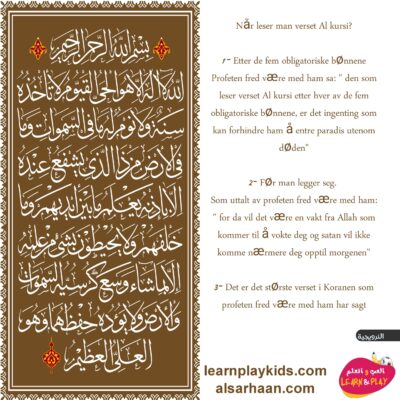 بسم الله الرحمن الرحيم
الله لا إله إلا هو الحي القيوم لا تأخذه
سنة ولا نوم له ما في السموات وما
في الأرض من ذا الذي يشفع عنده
إلا بإذنه يعلم ما بين أيديهم وما
خلفهم ولا يحيطون بشيء من علمه
إلا بما شاء وسع كرسيه السموات
والأرض ولا يؤوده حفظهما وهو
العلي العظيم
Når leser man verset Al kursi?
1- Etter de fem obligatoriske bønnene
Profeten fred være med ham sa: " den som
leser verset Al kursi etter hver av de fem
obligatoriske bønnene, er det ingenting som
kan forhindre ham å entre paradis utenom
døden"
2- Før man legger seg.
Som uttalt av profeten fred være med ham:
" for da vil det være en vakt fra Allah som
kommer til å vokte deg og satan vil ikke
komme nærmere deg opptil morgenen"
3- Det er det største verset i Koranen som
profeten fred være med ham har sagt
النرويجية
learnplaykids.com
alsarhaan.com
العب و اتعلم
LEARN & PLAY